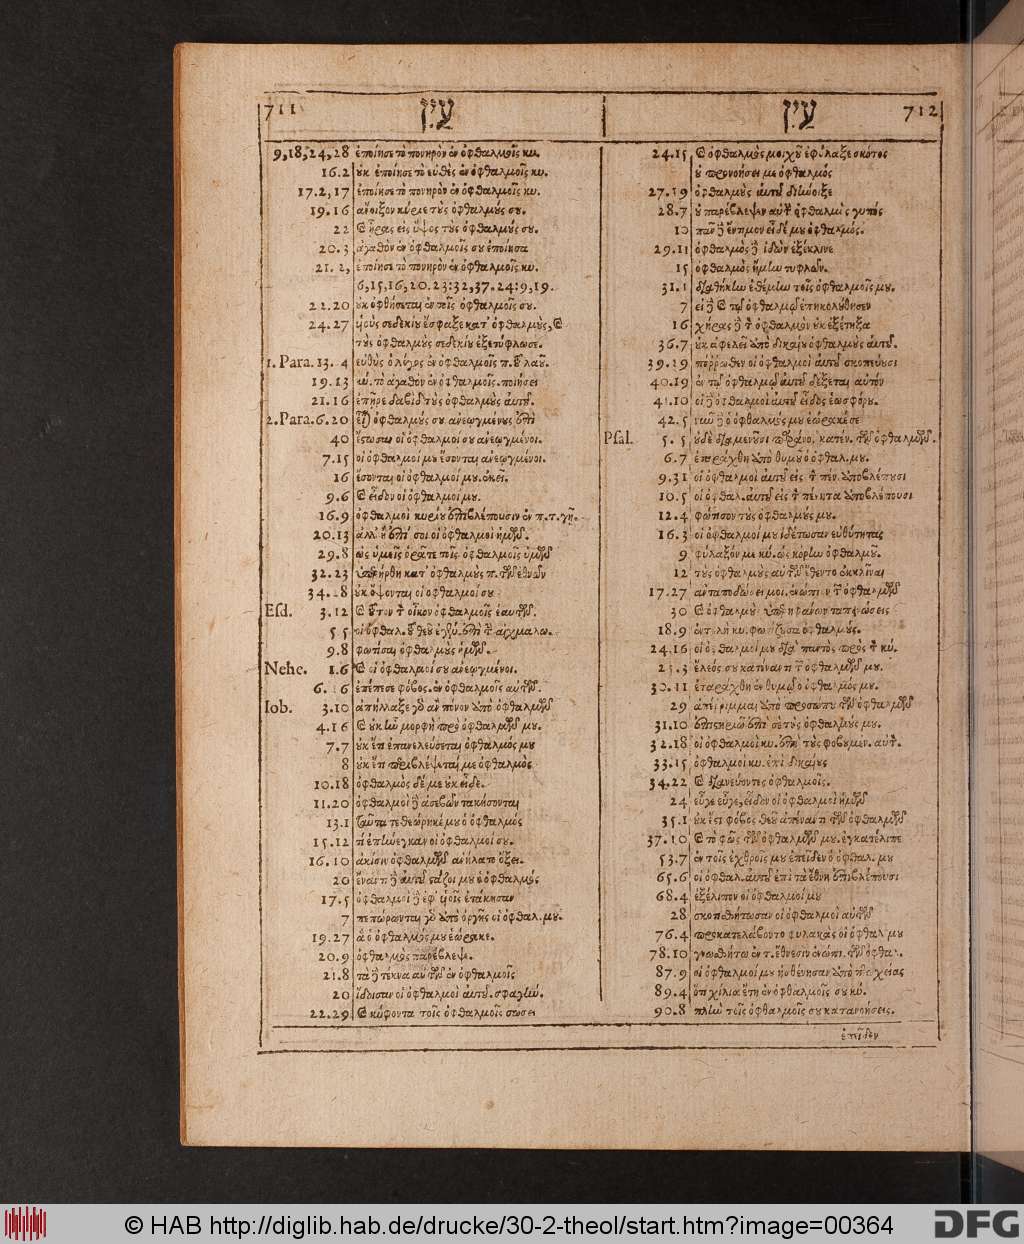 711 עין
9,18,24,28 ἐποίησε τὸ πονηρὸν ἐν ὀφθαλμοῖς κυ.
16.2 οὐκ ἐποίησε τὸ εὐθὲς ἐν ὀφθαλμοῖς κυ.
17.2,17 ἐποίησε τὸ πονηρὸν ἐν ὀφθαλμοῖς κυ.
19.16 ἄνοιξον κύριε τοὺς ὀφθαλμούς σου.
22 καὶ ἦρας εἰς ὕψος τοὺς ὀφθαλμούς σου.
20.3 ἀγαθὸν ἐν ὀφθαλμοῖς σου ἐποίησα
21.2, ἐποίησε τὸ πονηρὸν ἐν ὀφθαλμοῖς κυ.
6,15,16,20.23:32,37.24:9,19.
22.20 οὐκ ὀφθήσεται ἐν τοῖς ὀφθαλμοῖς σου.
24.27 υἱοὺς σεδεκίου ἔσφαξε κατ' ὀφθαλμοὺς, καὶ
τοὺς ὀφθαλμοὺς σεδεκίου ἐξετύφλωσε.
1. Para. 13. 4 εὐθὺς ὁ λόγος ἐν ὀφθαλμοῖς π. τοῦ λαοῦ.
19.13 κύ. τὸ ἀγαθὸν ἐν ὀφθαλμοῖς. ποιήσει
21.16 ἐπῆρε δαβὶδ τοὺς ὀφθαλμοὺς αὐτοῦ.
2. Para. 6.20 ὀφθαλμούς σου ἀνεῳγμένους ἐπὶ
40 ἔστωσαν οἱ ὀφθαλμοί σου ἀνεῳγμένοι.
7.15 οἱ ὀφθαλμοί μου ἔσονται ἀνεῳγμένοι.
16 ἔσονται οἱ ὀφθαλμοί μου. ἐκεῖ.
9.6 καὶ εἶδον οἱ ὀφθαλμοί μου.
16.9 ὀφθαλμοὶ κυρίου ἐπιβλέπουσιν ἐν π. τ. γῇ.
20.13 ἀλλ' ἢ ἐπί σοι οἱ ὀφθαλμοὶ ἡμῶν.
29.8 ὡς ὑμεῖς ὁρᾶτε τοῖς ὀφθαλμοῖς ὑμῶν
32.23 ὑπερήρθη κατ' ὀφθαλμοὺς π. τῶν ἐθνῶν
34.28 οὐκ ὄψονται οἱ ὀφθαλμοί σου
Esd. 3.12 καὶ τοῦτον τὸν οἶκον ὀφθαλμοῖς ἑαυτῶν.
5.5 οἱ ὀφθαλ. τοῦ θεοῦ ἐπὶ τὴν αἰχμαλω.
9.8 φωτίσαι ὀφθαλμοὺς ἡμῶν.
Nehe. 1.6 καὶ οἱ ὀφθαλμοί σου ἀνεῳγμένοι.
6.16 ἐπέπεσε φόβος. ἐν ὀφθαλμοῖς αὐτῶν.
Iob. 3.10 ἀπήλλαξε γὰρ ἂν πόνον ἀπὸ ὀφθαλμῶν
4.16 καὶ οὐκ ἦν μορφὴ πρὸ ὀφθαλμῶν μου.
7.7 οὐκ ἔτι ἐπανελεύσεται ὀφθαλμός μου
8 οὐκ ἔτι περιβλέψεταί με ὀφθαλμὸς
10.18 ὀφθαλμὸς δέ με οὐκ εἶδε.
11.20 ὀφθαλμοὶ δὲ ἀσεβῶν τακήσονται
13.1 ταῦτα τεθεώρηκέ μου ὁ ὀφθαλμός
15.12 τί ἐπήνεγκαν οἱ ὀφθαλμοί σου.
16.10 ἀκίσιν ὀφθαλμῶν ἐνήλατο ὀξει.
20 ἔναντι δὲ αὐτοῦ στάζοι μου ὁ ὀφθαλμός
17.5 ὀφθαλμοὶ δὲ ἐφ' υἱοῖς ἐτάκησαν
7 πεπώρωνται γὰρ ἀπὸ ὀργῆς οἱ ὀφθαλ. μου.
19.27 ἃ ὁ ὀφθαλμός μου ἑώρακε.
20.9 ὀφθαλμὸς παρέβλεψε.
21.8 τὰ δὲ τέκνα αὐτῶν ἐν ὀφθαλμοῖς
20 ἴδοισαν οἱ ὀφθαλμοὶ αὐτοῦ. σφαγήν.
22.29 καὶ κύφοντα τοῖς ὀφθαλμοῖς σώσει
עין 712
24.15 καὶ ὀφθαλμὸς μοιχοῦ ἐφύλαξε σκότος
οὐ προνοήσει με ὀφθαλμός
27.19 ὀφθαλμοὺς αὐτοῦ διήνοιξε
28.7 οὐ παρέβλεψεν αὐτὴν ὀφθαλμὸς γυπός
10 πᾶν δὲ ἔντιμον εἶδέ μου ὀφθαλμός.
29.11 ὀφθαλμὸς δὲ ἰδών ἐξέκλινε
15 ὀφθαλμὸς ἤμην τυφλῶν.
31.1 διαθήκην ἐθέμην τοῖς ὀφθαλμοῖς μου.
7 εἰ δὲ καὶ τῷ ὀφθαλμῷ ἐπηκολούθησεν
16 χήρας δὲ τὸν ὀφθαλμὸν οὐκ ἐξέτηξα
36.7 οὐκ ἀφελεῖ ἀπὸ δικαίου ὀφθαλμοὺς αὐτοῦ.
39.29 πόρρωθεν οἱ ὀφθαλμοὶ αὐτοῦ σκοπεύουσι
40.19 ἐν τῷ ὀφθαλμῷ αὐτοῦ δέξεται αὐτόν
41.10 οἱ δὲ ὀφθαλμοὶ αὐτοῦ εἶδος ἑωσφόρου.
42.5 νυνὶ δὲ ὁ ὀφθαλμός μου ἑώρακέ σε
Psal. 5.5 οὐδὲ διαμενοῦσι παράνο. κατέν. τῶν ὀφθαλμῶν.
6.7 ἐταράχθη ἀπὸ θυμοῦ ὁ ὀφθαλ. μου.
9.31 οἱ ὀφθαλμοὶ αὐτοῦ εἰς τὸν πέν. ἀποβλέπουσι
10.5 οἱ ὀφθαλ. αὐτοῦ εἰς τὸν πένητα ἀποβλέπουσι
12.4 φώτισον τοὺς ὀφθαλμούς μου.
16.3 οἱ ὀφθαλμοί μου ἰδέτωσαν εὐθύτητας
9 φύλαξόν με κύ. ὡς κόρην ὀφθαλμοῦ.
12 τοὺς ὀφθαλμοὺς αὐτῶν ἔθεντο ἐκκλῖναι
17.27 ἀνταποδώσει μοι. ἐνώπιον τῶν ὀφθαλμῶν
30 καὶ ὀφθαλμοὺς ὑπερηφάνων ταπεινώσεις
18.9 ἐντολὴ κυ. φωτίζουσα ὀφθαλμούς.
24.16 οἱ ὀφθαλμοί μου διὰ παντὸς πρὸς τὸν κύ.
25.3 ἔλεός σου κατέναντι τῶν ὀφθαλμῶν μου.
30.11 ἐταράχθη ἐν θυμῷ ὁ ὀφθαλμός μου.
29 ἀπέρριμμαι ἀπὸ προσώπου τῶν ὀφθαλμῶν
31.10 ἐπιστηριῶ ἐπὶ σὲ τοὺς ὀφθαλμούς μου.
32.18 οἱ ὀφθαλμοὶ κυ. ἐπὶ τοὺς φοβουμεν. αὐτὸν.
33.15 ὀφθαλμοὶ κυ. ἐπὶ δικαίους
34.22 καὶ διανεύοντες ὀφθαλμοῖς.
24 εὖγε εὖγε, εἶδον οἱ ὀφθαλμοὶ ἡμῶν
35.1 οὐκ ἔστι φόβος θεοῦ ἀπέναντι τῶν ὀφθαλμῶν
37.10 καὶ τὸ φῶς τῶν ὀφθαλμῶν μου. ἐγκατέλιπε
53.7 ἐν τοῖς ἐχθροῖς μου ἐπεῖδεν ὁ ὀφθαλ. μου
65.6 οἱ ὀφθαλ. αὐτοῦ ἐπὶ τὰ ἔθνη ἐπιβλέπουσι
68.4 ἐξέλιπον οἱ ὀφθαλμοί μου
28 σκοτισθήτωσαν οἱ ὀφθαλμοὶ αὐτῶν
76.4 προκατελάβοντο φυλακὰς οἱ ὀφθαλ. μου
78.10 γνωσθήτω ἐν τ. ἔθνεσιν ἐνώπι. τῶν ὀφθαλ.
87.9 οἱ ὀφθαλμοί μου ἠσθένησαν ἀπὸ πτωχείας
89.4 ὅτι χίλια ἔτη ἐν ὀφθαλμοῖς σου κύ.
90.8 πλὴν τοῖς ὀφθαλμοῖς σου κατανοήσεις.
ἐπεῖδεν
© HAB http://diglib.hab.de/drucke/30-2-theol/start.htm?image=00364
DFG